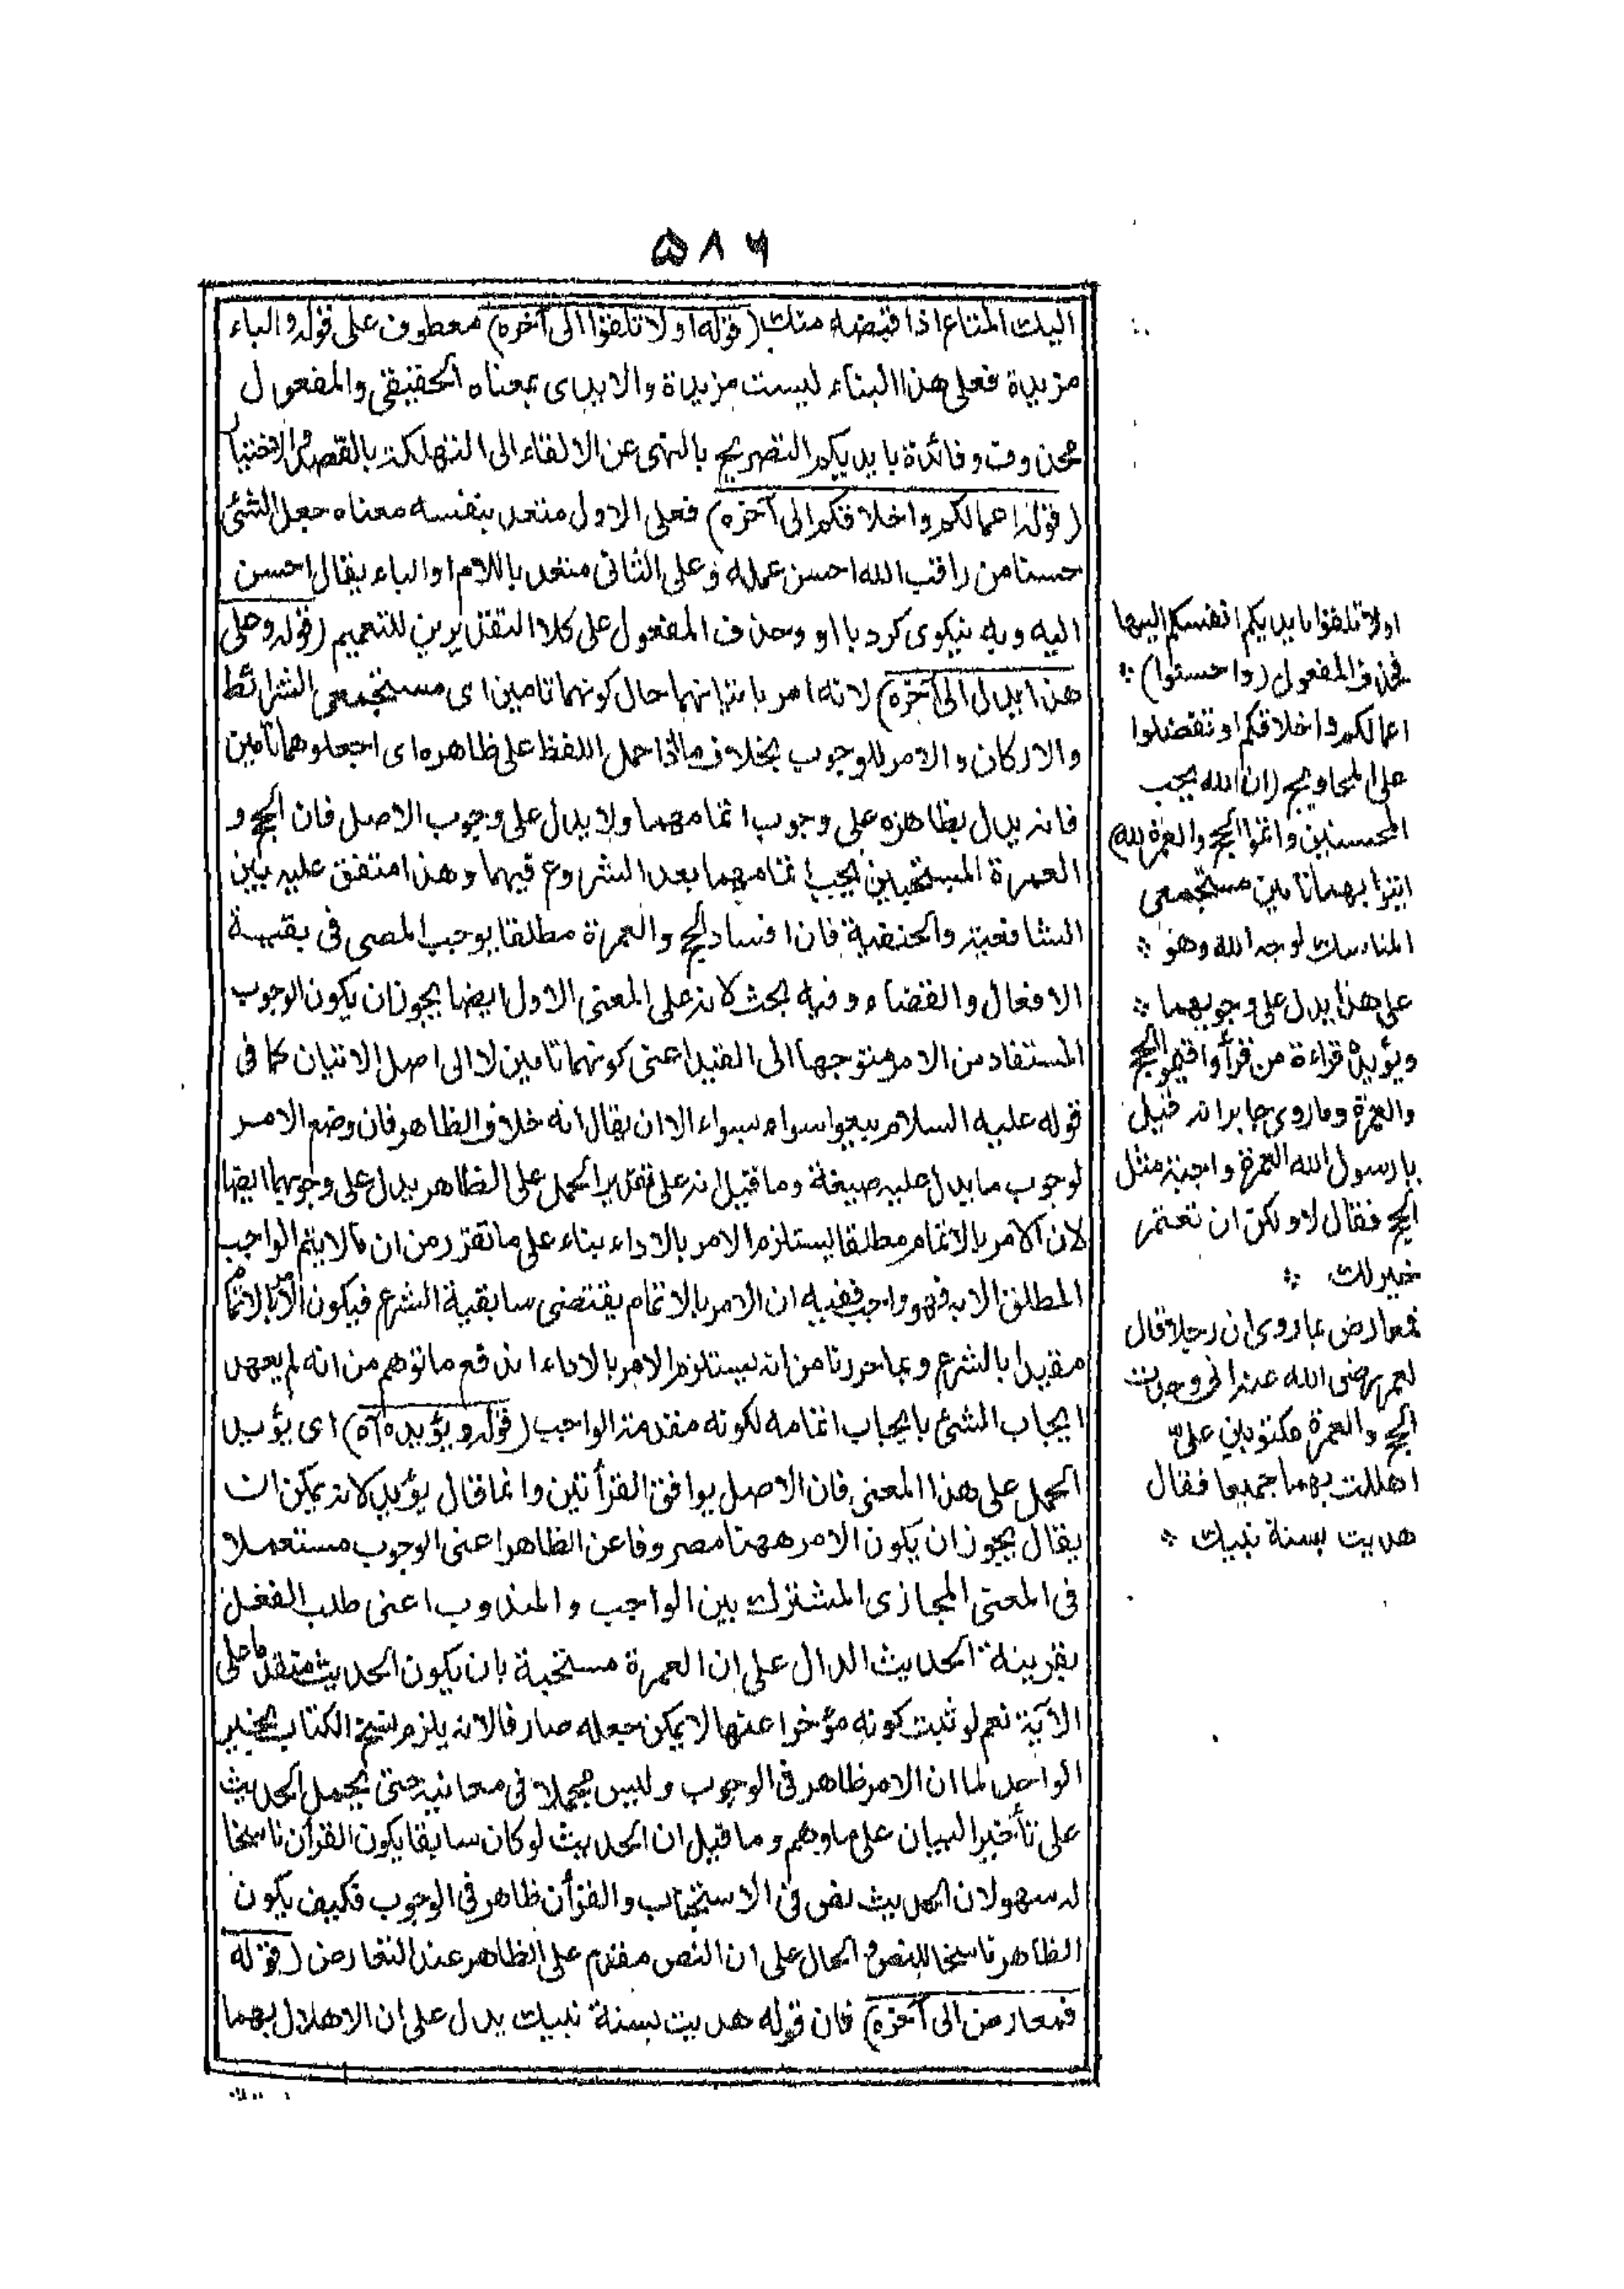 ۵۸۶
اليك المتاع اذا قبضه منك (قوله او لا تلقوا الى آخره) معطوف على قوله والباء
مزيدة فعلى هذا الباء ليست مزيدة والايدى بمعناه الحقيقى والمفعول
محذوف وفائدة بايديكم التصريح بالنهى عن الالقاء الى التهلكة بالقصد والاختيار
(قوله اعمالكم واخلاقكم الى آخره) فعلى الاول متعد بنفسه معناه جعل الشئ
حسنا من راقب الله احسن عمله وعلى الثانى متعد باللام او الباء يقال احسن
اليه وبه نيكوى كرد با او وحذف المفعول على كلا التقديرين للتعميم (قوله وعلى
هذا يدل الى آخره) لانه امر باتيانهما حال كونهما تامين اى مستجمعى الشرائط
والاركان والامر للوجوب بخلاف ما اذا حمل اللفظ على ظاهره اى اجعلوهما تامين
فانه يدل بظاهره على وجوب اتمامهما ولا يدل على وجوب الاصل فان الحج و
العمرة المستحبين يجب اتمامهما بعد الشروع فيهما وهذا متفق عليه بين
الشافعية والحنفية فان افساد الحج والعمرة مطلقا يوجب المضى فى بقية
الافعال والقضاء وفيه بحث لانه على المعنى الاول ايضا يجوز ان يكون الوجوب
المستفاد من الامر متوجها الى القيد اعنى كونهما تامين لا الى اصل الاتيان كما فى
قوله عليه السلام بيعوا سواء بسواء الا ان يقال انه خلاف الظاهر فان وضع الامر
لوجوب ما يدل عليه صيغة وما قيل انه على تقدير الحمل على الظاهر يدل على وجوبهما ايضا
لان الامر بالاتمام مطلقا يستلزم الامر بالاداء بناء على ما تقرر من ان ما لا يتم الواجب
المطلق الا به فهو واجب ففيه ان الامر بالاتمام يقتضى سابقية الشرع فيكون الامر بالاتمام
مقيدا بالشرع وبما حررنا من انه يستلزم الامر بالاداء اندفع ما توهم من انه لم يعهد
ايجاب الشئ بايجاب اتمامه لكونه مقدمة الواجب (قوله ويؤيده آه) اى يؤيد
الحمل على هذا المعنى فان الاصل يوافق القرأتين وانما قال يؤيد لانه يمكن ان
يقال يجوز ان يكون الامر ههنا مصروفا عن الظاهر اعنى الوجوب مستعملا
فى المعنى المجازى المشترك بين الواجب والمندوب اعنى طلب الفعل
بقرينة الحديث الدال على ان العمرة مستحبة بان يكون الحديث متقدما على
الآية نعم لو ثبت كونه مؤخرا عنها لا يمكن جعله صارفا لانه يلزم نسخ الكتاب بخبر
الواحد لما ان الامر ظاهر فى الوجوب وليس مجملا فى معانيه حتى يحمل الحديث
على تأخير البيان على ما وهم وما قيل ان الحديث لو كان سابقا يكون القرآن ناسخا
له سهو لان الحديث نص فى الاستحباب والقرآن ظاهر فى الوجوب فكيف يكون
الظاهر ناسخا للنص والحال على ان النص مقدم على الظاهر عند التعارض (قوله
فمعارض الى آخره) فان قوله هديت بسنة نبيك يدل على ان الاهلال بهما
اولا تلقوا بايديكم انفسكم اليها
فحذف المفعول (واحسنوا) ؞
اعمالكم واخلاقكم او تفضلوا
على المحاويج (ان الله يحب
المحسنين واتموا الحج والعمرة لله)
ايتوا بهما تامين مستجمعى
المناسك لوجه الله وهو ؞
على هذا يدل على وجوبهما ؞
ويؤيده قراءة من قرأ واقيموا الحج
والعمرة وما روى جابر انه قيل
يا رسول الله العمرة واجبة مثل
الحج فقال لا ولكن ان تعتمر
خير لك ؞
فمعارض بما روى ان رجلا قال
لعمر رضى الله عنه انى وجدت
الحج والعمرة مكتوبين علىّ
اهللت بهما جميعا فقال
هديت بسنة نبيك ؞